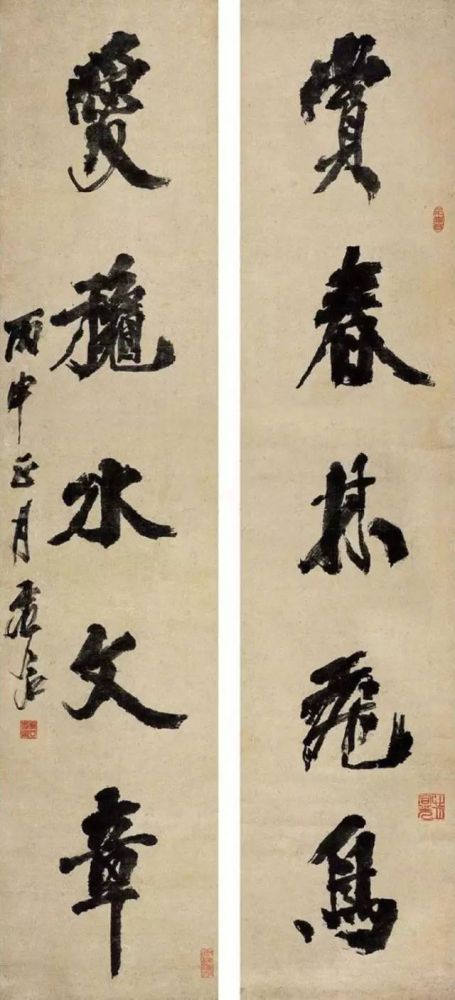 賞春林飛鳥
愛穐水文章
丙申正月虛谷